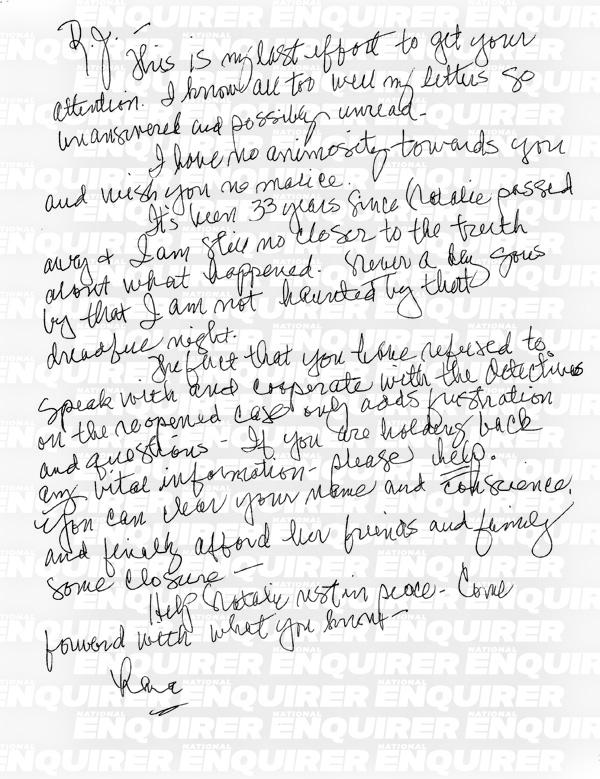 R.J. —
This is my last effort to get your
attention. I know all too well my letters go
unanswered and possibly unread —
I have no animosity towards you
and wish you no malice.
It's been 33 years since Natalie passed
away & I am still no closer to the truth
about what happened. Never a day goes
by that I am not haunted by that
dreadful night.
The fact that you have refused to
speak with and cooperate with the detectives
on the reopened case only adds frustration
and questions — If you are holding back
any vital information — please help.
You can clear your name and conscience,
and finally afford her friends and family
some closure —
Help Natalie rest in peace — Come
forward with what you know —
Lana
NATIONAL ENQUIRER